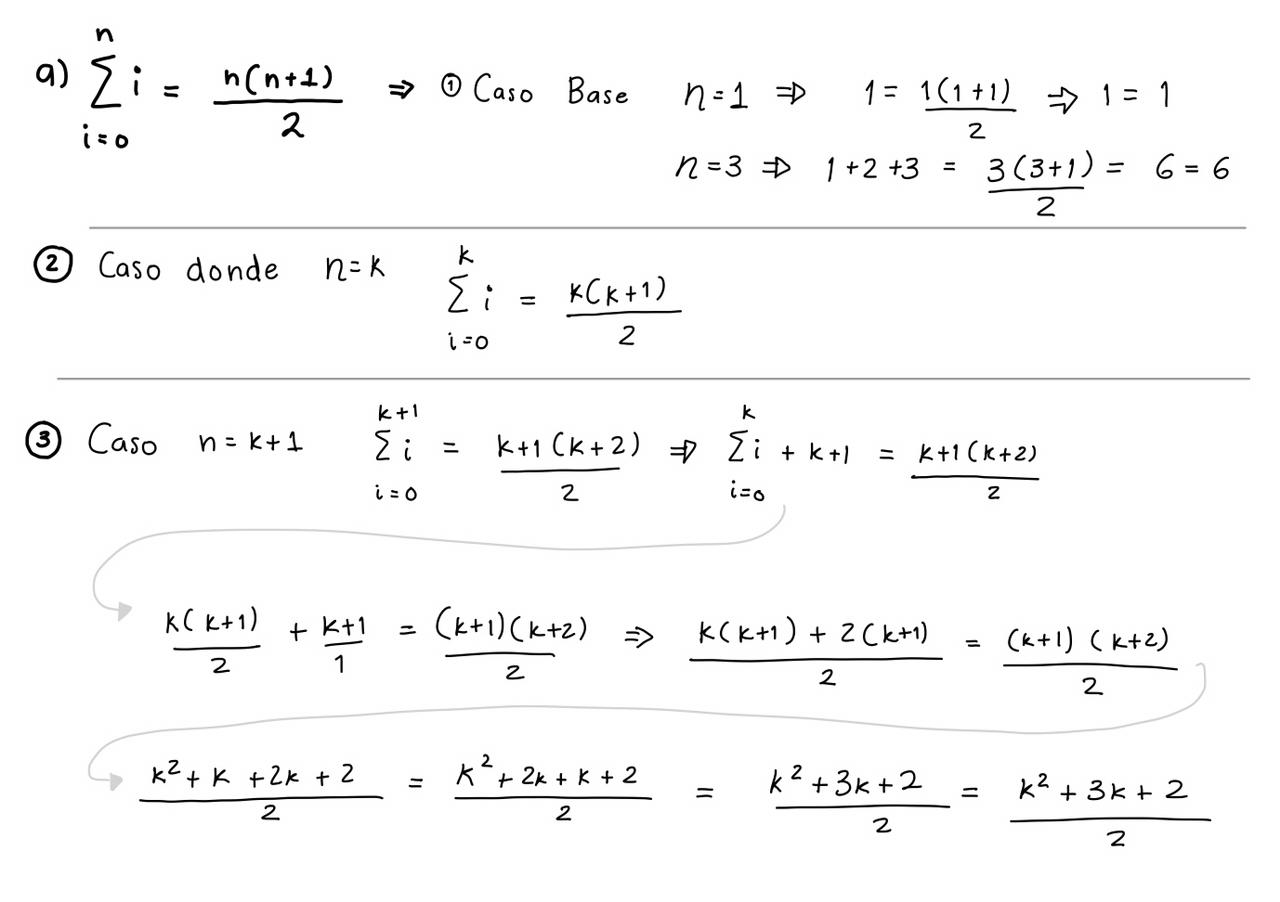 a) ∑_{i=0}^{n} i = n(n+1)/2 ⇒ ① Caso Base n=1 ⇒ 1 = 1(1+1)/2 ⇒ 1 = 1
n=3 ⇒ 1+2+3 = 3(3+1)/2 = 6 = 6
② Caso donde n=k ∑_{i=0}^{k} i = k(k+1)/2
③ Caso n=k+1 ∑_{i=0}^{k+1} i = k+1(k+2)/2 ⇒ ∑_{i=0}^{k} i + k+1 = k+1(k+2)/2
k(k+1)/2 + k+1/1 = (k+1)(k+2)/2 ⇒ k(k+1) + 2(k+1)/2 = (k+1)(k+2)/2
k²+k+2k+2/2 = k²+2k+k+2/2 = k²+3k+2/2 = k²+3k+2/2